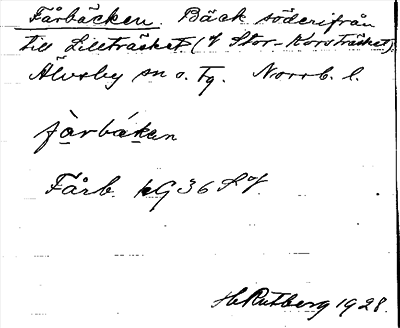 Fårbäcken. Bäck söderifrån
till Lillträsket (i Stor-Korsträsket)
Älvsby sn o. tg. Norrb. l.
fårbäken
Fårb. kG36 S of.
H Rutberg 1928.